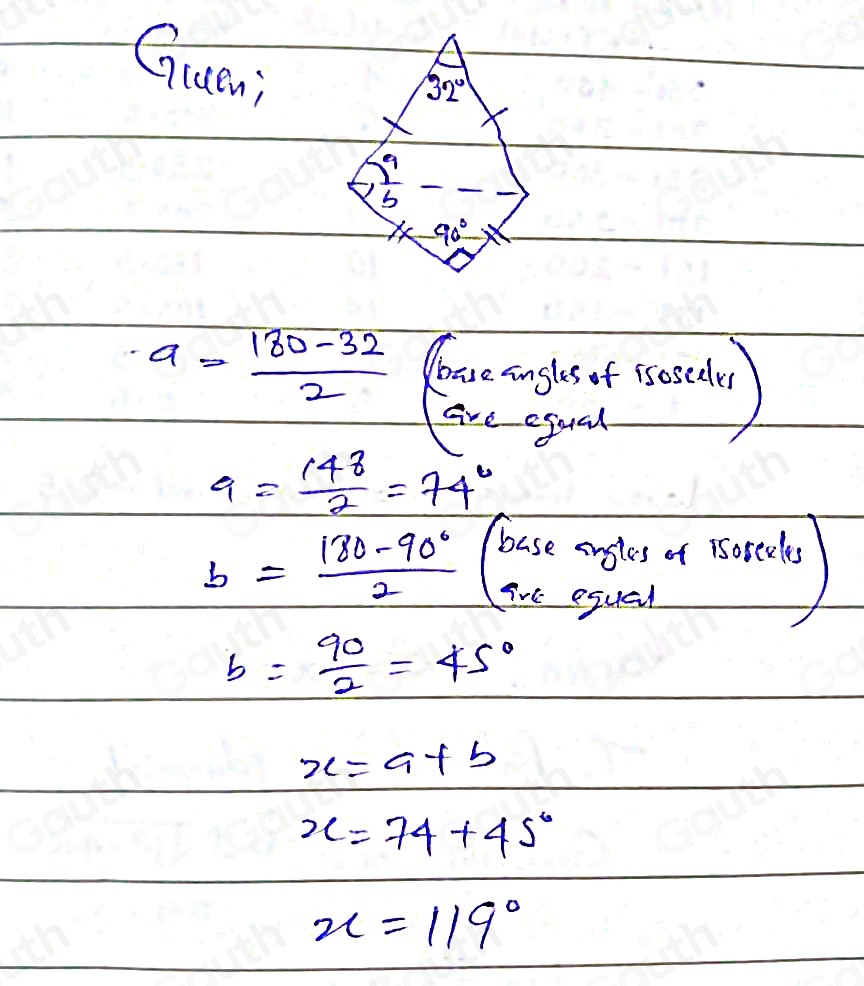 Given;
32°
a
b
90°
a = (180-32)/2 (base angles of isosceles
are equal)
a = 148/2 = 74°
b = (180-90°)/2 (base angles of isosceles
are equal)
b = 90/2 = 45°
x = a + b
x = 74 + 45°
x = 119°
Gauth